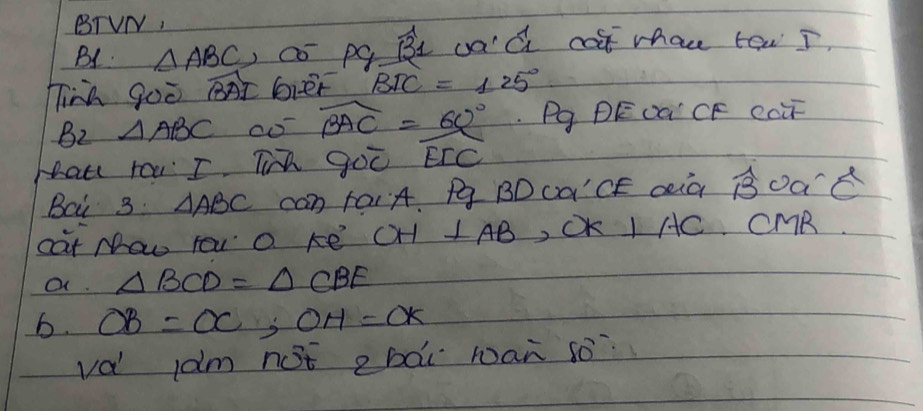 BTVN,
B1: △ABC, có pg B̂1 và Ĉ1 cắt nhau tại I.
Tính góc BAI biết BIC = 125°
B2 △ABC có BAC = 60°. Pg BE và CF cắt
nhau tại I. Tính góc EIC
Bài 3: △ABC cân tại A. Pg BD và CE của B̂ và Ĉ
cắt nhau tại O kẻ OH ⊥ AB, OK ⊥ AC. CMR
a. △BCD = △CBE
b. OB = OC ; OH = OK
Và làm nốt 2 bài toán số.